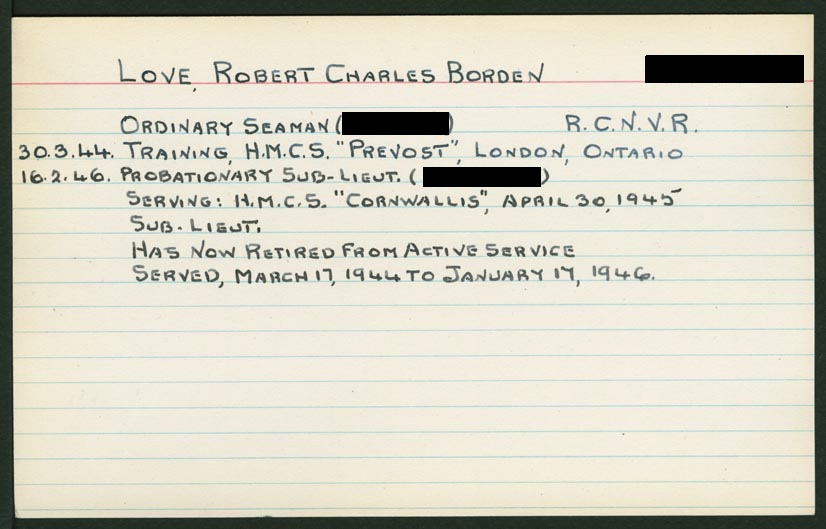 LOVE, ROBERT CHARLES BORDEN
ORDINARY SEAMAN ( ) R.C.N.V.R.
30.3.44. TRAINING, H.M.C.S. "PREVOST", LONDON, ONTARIO
16.2.46. PROBATIONARY SUB-LIEUT. ( )
SERVING: H.M.C.S. "CORNWALLIS", APRIL 30, 1945
SUB-LIEUT.
HAS NOW RETIRED FROM ACTIVE SERVICE
SERVED, MARCH 17, 1944 TO JANUARY 17, 1946.